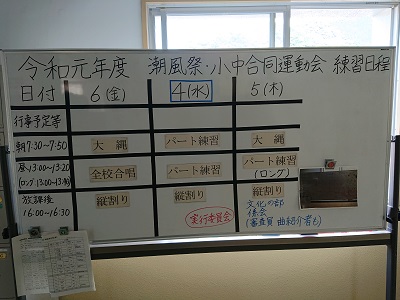 令和元年度 潮風祭・小中合同運動会 練習日程
日付 6(金) 4(水) 5(木)
行事予定等
朝7:30~7:50 大縄 パート練習 大縄
昼13:00~13:20 全校合唱 パート練習 パート練習
(ロング) (ロング)
放課後 縦割り 縦割り 縦割り
16:00~16:30 実行委員会 文化の部
係会
(審査員 曲紹介者も)